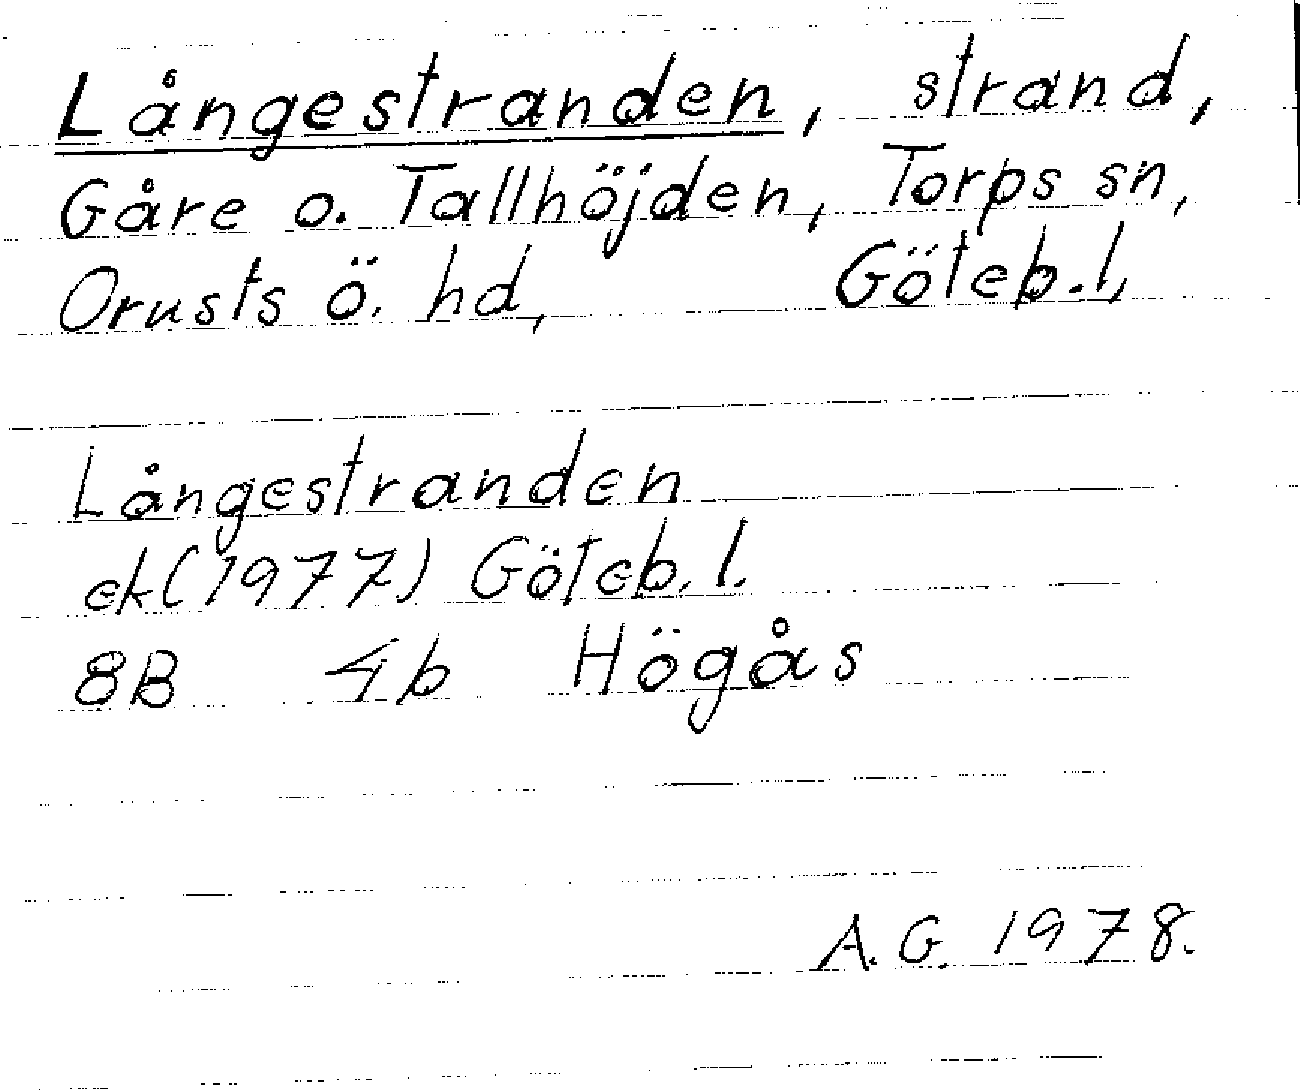 Långestranden, strand,
Gåre o. Tallhöjden, Torps sn,
Orusts ö. hd, Göteb. l,
Långestranden
ek (1977) Göteb. l.
8B 4b Högås
A. G. 1978.